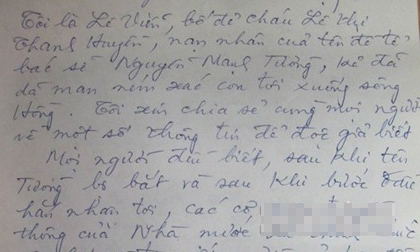 Tôi là Lê Viễn, bố đẻ cháu Lê Thị
Thanh Huyền, nạn nhân của tên đồ tể
bác sĩ Nguyễn Mạnh Tường, kẻ đã
dã man ném xác con tôi xuống sông
Hồng. Tôi xin chia sẻ cùng mọi người
về một số thông tin để độc giả biết
Mọi người đều biết, sau khi tên
Tường bị bắt và sau khi bước đầu
hắn nhận tội, các cơ
thống của Nhà nước